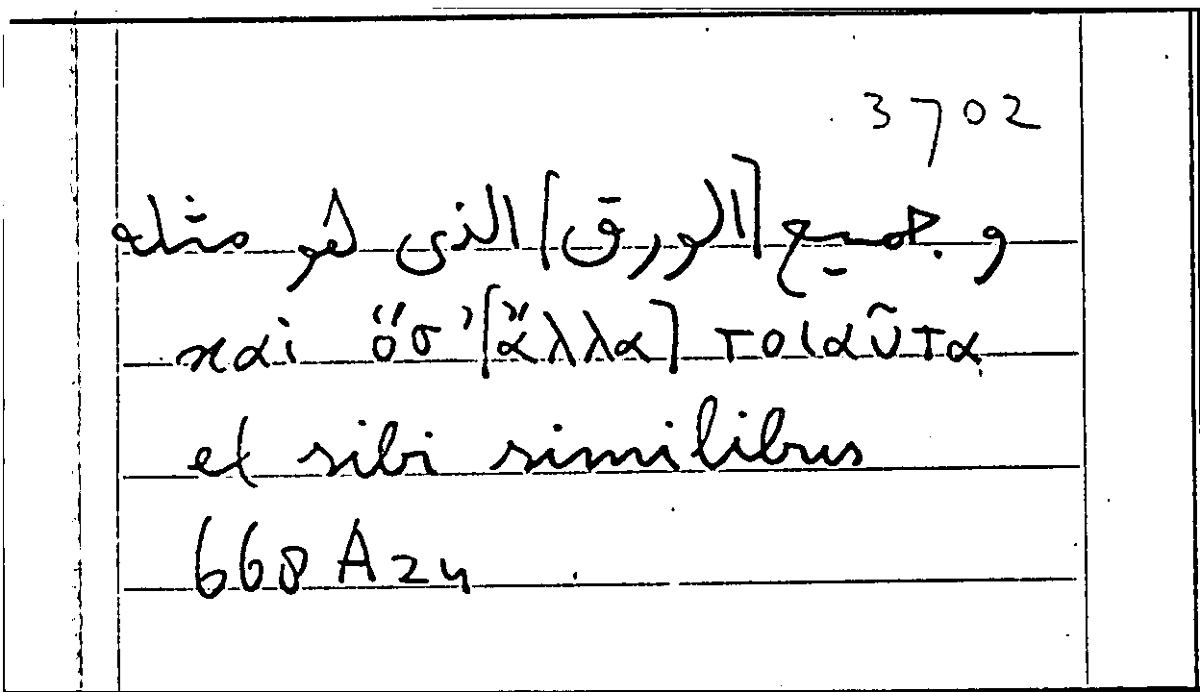 3702
و جميع [الورق] الذى هو مثله
καὶ ὅσ' [ἄλλα] τοιαῦτα
et sibi similibus
668 A 24